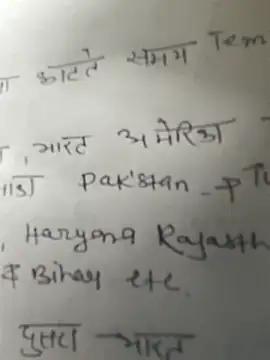 काटते समय Tem
, भारत अमेरिका
Pakistan
, Haryana Rajasth
Bihar etc.
भारत